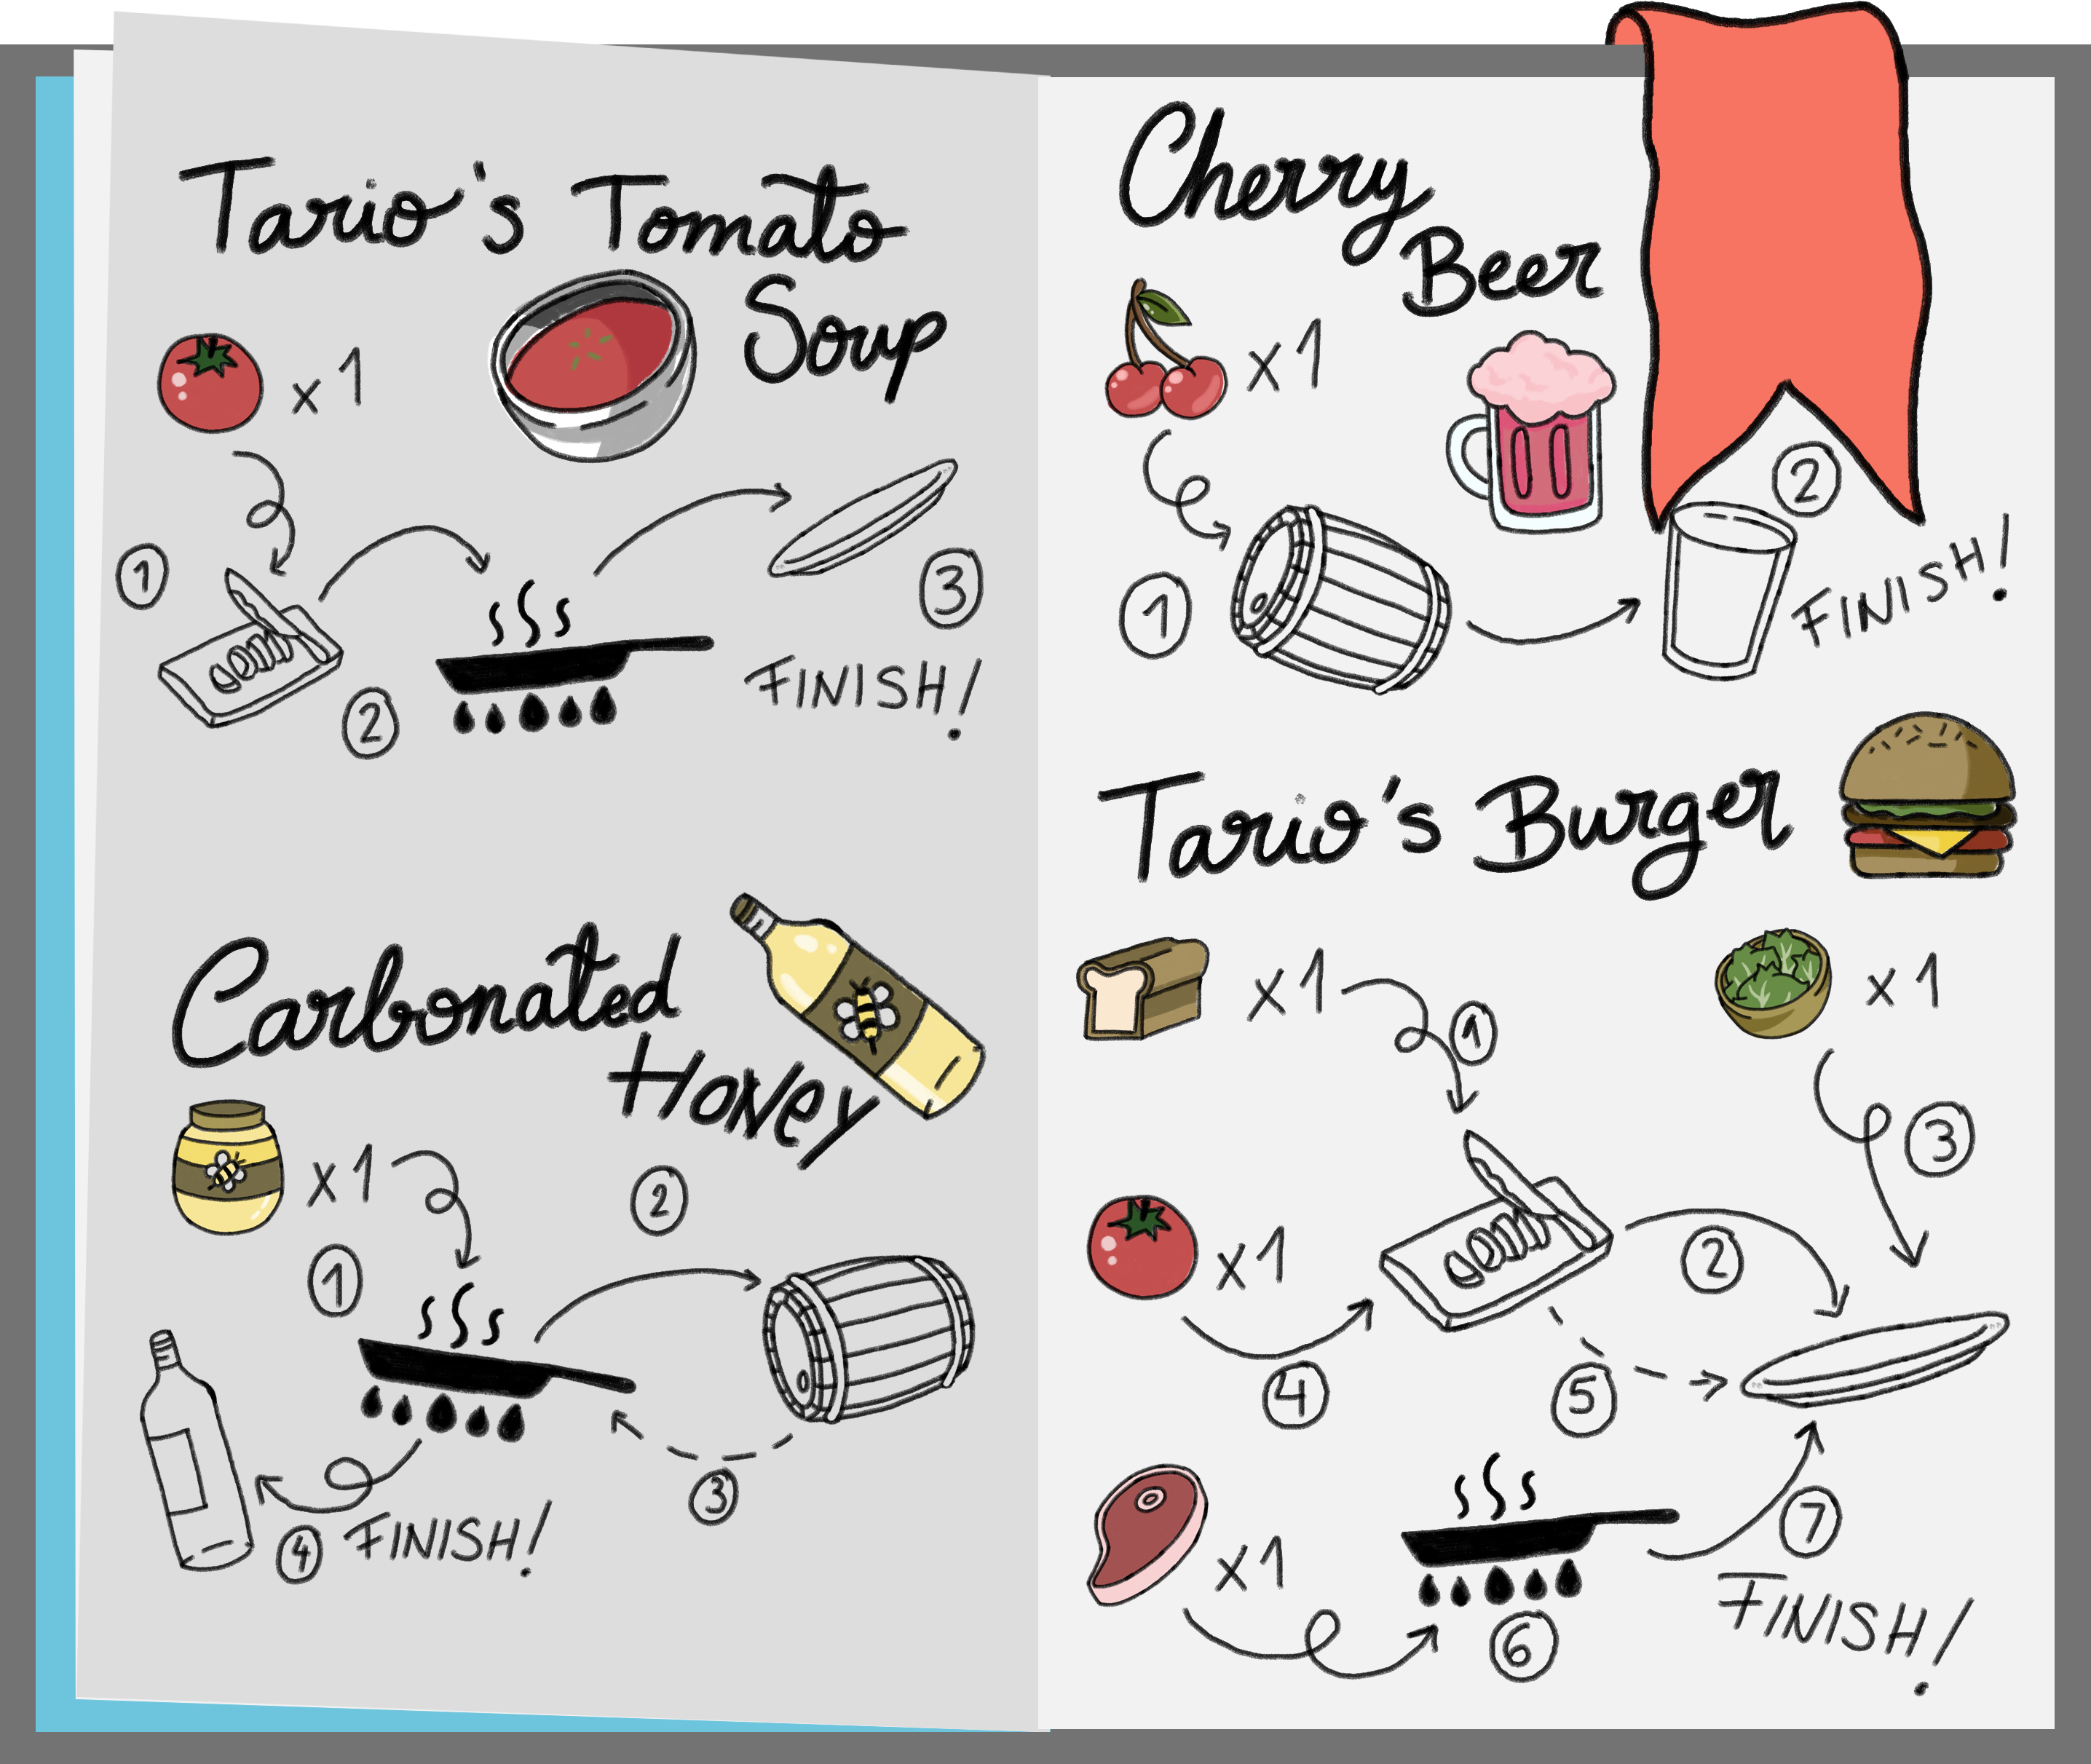 Tario's Tomato
Soup
x1
1
2
3
FINISH!
Carbonated
Honey
x1
1
2
3
4 FINISH!
Cherry
Beer
x1
1
2
FINISH!
Tario's Burger
x1
1
x1
3
x1
2
4
5
x1
6
7
FINISH!